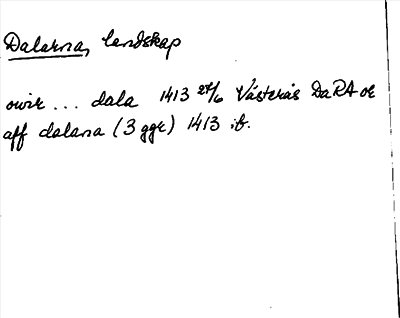 Dalarna, landskap
owir ... dala 1413 27/6 Västerås DaRA or
aff dalana (3 ggr) 1413 ib.